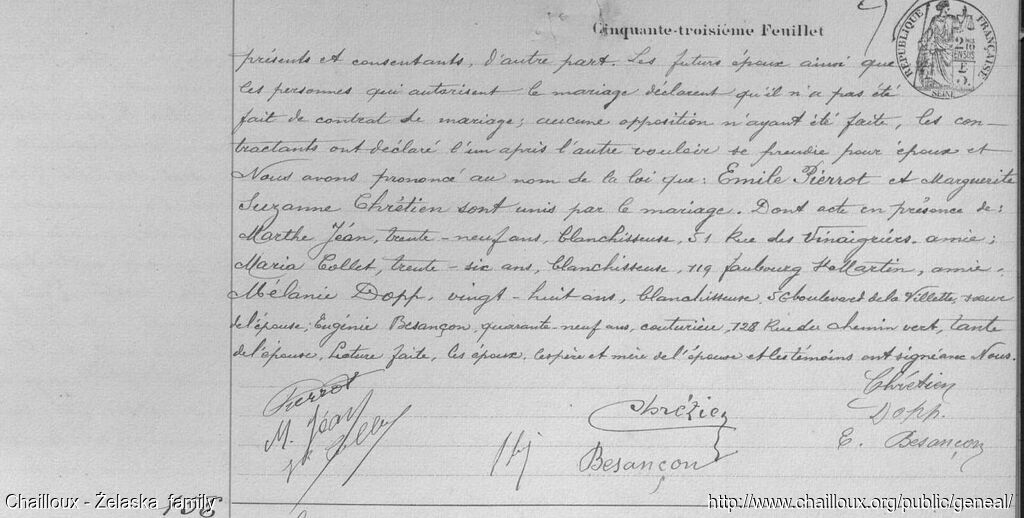 Cinquante-troisième Feuillet
RÉPUBLIQUE FRANÇAISE
SEINE
présents et consentants, d'autre part. Les futurs époux ainsi que
les personnes qui autorisent le mariage déclarent qu'il n'a pas été
fait de contrat de mariage; aucune opposition n'ayant été faite, les con-
tractants ont déclaré l'un après l'autre vouloir se prendre pour époux et
Nous avons prononcé au nom de la loi que: Emile Pierrot et Marguerite
Suzanne Chrétien sont unis par le mariage. Dont acte en présence de:
Marthe Jéan, trente-neuf ans, blanchisseuse, 51 Rue des Vinaigriers, amie;
Maria Collet, trente-six ans, blanchisseuse, 119 faubourg St Martin, amie.
Mélanie Dopp, vingt-huit ans, blanchisseuse, 56 boulevard de la Villette, sœur
de l'épouse; Eugénie Besançon, quarante-neuf ans, couturière, 128 Rue du Chemin vert, tante
de l'épouse. Lecture faite, les époux, les père et mère de l'épouse et les témoins ont signé avec Nous.
Pierrot
M. Jéan
Collet
Chrétien
Besançon
Chrétien
Dopp.
E. Besançon
Chailloux - Żelaska family
http://www.chailloux.org/public/geneal/